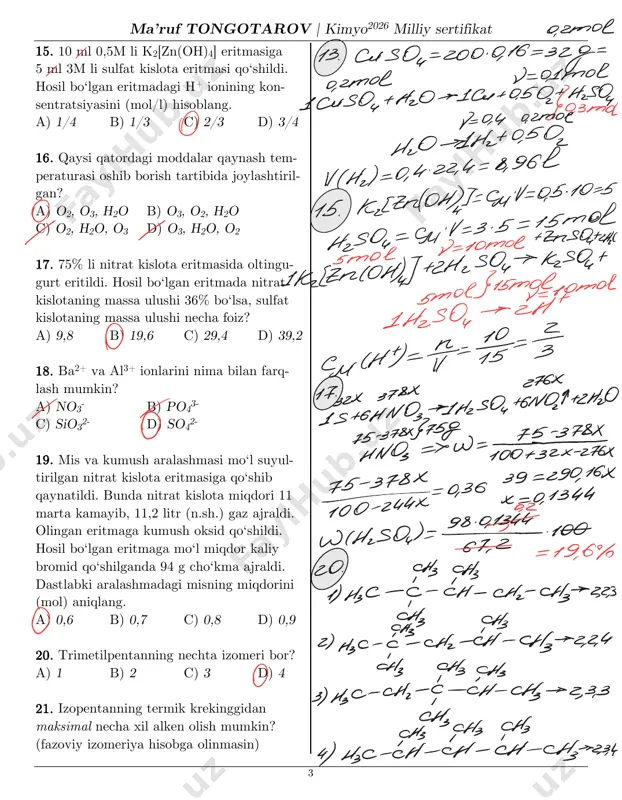 Ma'ruf TONGOTAROV | Kimyo²⁰²⁶ Milliy sertifikat
15. 10 ml 0,5M li K₂[Zn(OH)₄] eritmasiga
5 ml 3M li sulfat kislota eritmasi qo‘shildi.
Hosil bo‘lgan eritmadagi H⁺ ionining kon-
sentratsiyasini (mol/l) hisoblang.
A) 1/4 B) 1/3 C) 2/3 D) 3/4
16. Qaysi qatordagi moddalar qaynash tem-
peraturasi oshib borish tartibida joylashtiril-
gan?
A) O₂, O₃, H₂O B) O₃, O₂, H₂O
C) O₂, H₂O, O₃ D) O₃, H₂O, O₂
17. 75% li nitrat kislota eritmasida oltingu-
gurt eritildi. Hosil bo‘lgan eritmada nitrat
kislotaning massa ulushi 36% bo‘lsa, sulfat
kislotaning massa ulushi necha foiz?
A) 9,8 B) 19,6 C) 29,4 D) 39,2
18. Ba²⁺ va Al³⁺ ionlarini nima bilan farq-
lash mumkin?
A) NO₃⁻ B) PO₄³⁻
C) SiO₃²⁻ D) SO₄²⁻
19. Mis va kumush aralashmasi mo‘l suyul-
tirilgan nitrat kislota eritmasiga qo‘shib
qaynatildi. Bunda nitrat kislota miqdori 11
marta kamayib, 11,2 litr (n.sh.) gaz ajraldi.
Olingan eritmaga kumush oksid qo‘shildi.
Hosil bo‘lgan eritmaga mo‘l miqdor kaliy
bromid qo‘shilganda 94 g cho‘kma ajraldi.
Dastlabki aralashmadagi misning miqdorini
(mol) aniqlang.
A) 0,6 B) 0,7 C) 0,8 D) 0,9
20. Trimetilpentanning nechta izomeri bor?
A) 1 B) 2 C) 3 D) 4
21. Izopentanning termik krekinggidan
maksimal necha xil alken olish mumkin?
(fazoviy izomeriya hisobga olinmasin)
0,2mol
13. CuSO₄=200·0,16=32g=
0,2mol V=0,1mol
1CuSO₄+H₂O→1Cu+0,5O₂+H₂SO₄
V=0,4 0,2mol
H₂O→1H₂+0,5O₂
V(H₂)=0,4·22,4=8,96l
15. K₂[Zn(OH)₄]=Cм·V=0,5·10=5
H₂SO₄=Cм·V=3·5=15mol
5mol V=10mol
1K₂[Zn(OH)₄]+2H₂SO₄→K₂SO₄+
5mol}15mol V=10mol
1H₂SO₄→2H⁺
Cм(H⁺)=n/V=10/15=2/3
17. 32X 378X 276X
1S+6HNO₃→1H₂SO₄+6NO₂↑+2H₂O
75-378X}75g
HNO₃=>W=75-378X/100+32X-276X
75-378X/100-244X=0,36 39=290,16X
X=0,1344
W(H₂SO₄)=98·0,1344/67,2·100
=19,6%
20
CH₃ CH₃
1) H₃C-C-CH-CH₂-CH₃→2,2,3
CH₃
CH₃ CH₃
2) H₃C-C-CH₂-CH-CH₃→2,2,4
CH₃ CH₃ CH₃
3) H₃C-CH₂-C-CH-CH₃→2,3,3
CH₃
CH₃ CH₃ CH₃
4) H₃C-CH-CH-CH-CH₃→2,3,4
3